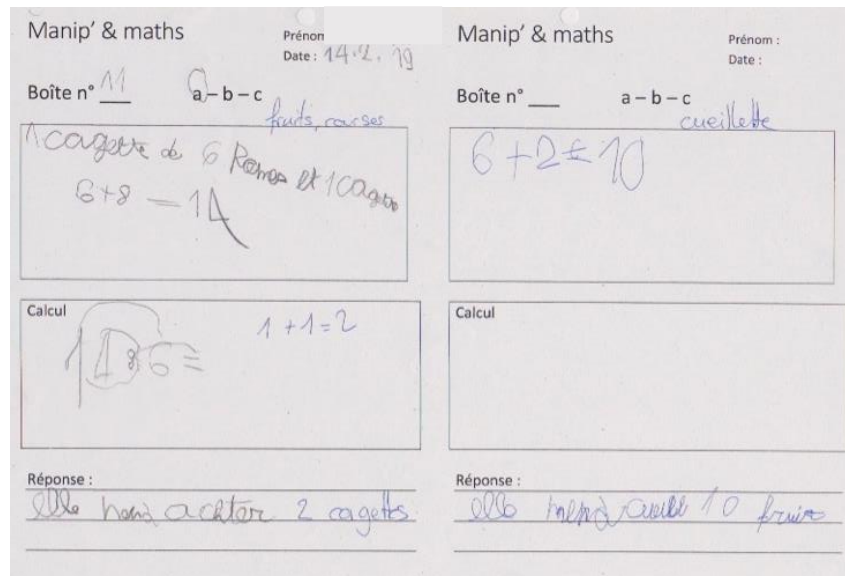 Manip' & maths
Prénom
Date : 14.2.19
Boîte n° 11 a – b – c
fruits, courses
1 cagette de 6 et 1 cagette
6+8 = 14
Calcul
1 + 1 = 2
Réponse :
elle achter 2 cagetts
Manip' & maths
Prénom :
Date :
Boîte n° ___ a – b – c
cueillette
6 + 2 = 10
Calcul
Réponse :
elle 10 fruits